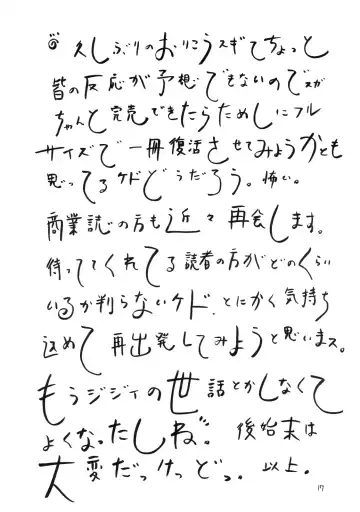 久しぶりのおりこうスギてちょっと
皆の反応が予想できないのでスが
ちゃんと完売できたらためしにフル
サイズで一冊復活させてみようかとも
思ってるケドどうだろう。怖い。
商業誌の方も近々再会します。
待っててくれてる読者の方がどのくらい
いるか判らないケド、とにかく気持ち
込めて再出発してみようと思いまス。
もうジジィの世話とかしなくて
よくなったしね。後始末は
大変だっけっどっ。以上。
17